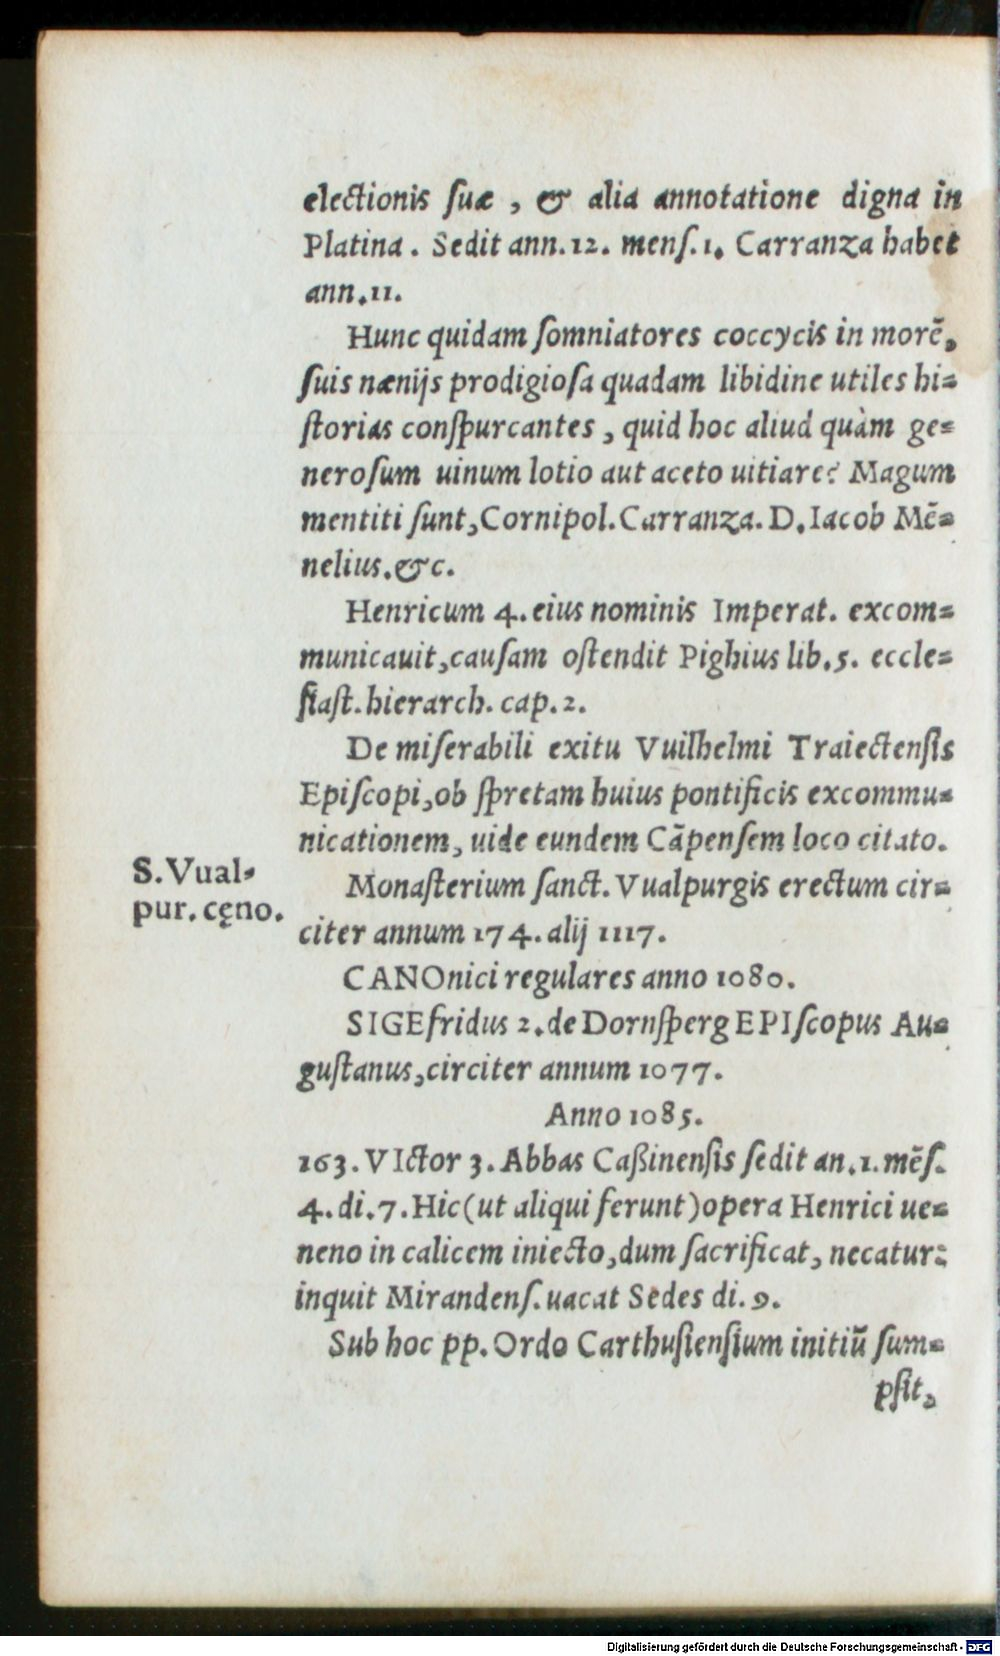 electionis ſuæ, & alia annotatione digna in
Platina. Sedit ann. 12. menſ. 1. Carranza habet
ann. 11.
Hunc quidam ſomniatores coccycis in morẽ,
ſuis nænijs prodigioſa quadam libidine utiles hi=
ſtorias conſpurcantes, quid hoc aliud quàm ge=
neroſum uinum lotio aut aceto uitiare? Magum
mentiti ſunt, Cornipol. Carranza. D. Iacob Mẽ=
nelius. &c.
Henricum 4. eius nominis Imperat. excom=
municauit, cauſam oſtendit Pighius lib. 5. eccle=
ſiaſt. hierarch. cap. 2.
De miſerabili exitu Vuilhelmi Traiectenſis
Epiſcopi, ob ſpretam huius pontificis excommu=
nicationem, uide eundem Cãpenſem loco citato.
S. Vual=
pur. cęno.
Monaſterium ſanct. Vualpurgis erectum cir=
citer annum 174. alij 1117.
CANOnici regulares anno 1080.
SIGEfridus 2. de Dornſperg EPIſcopus Au=
guſtanus, circiter annum 1077.
Anno 1085.
163. VIctor 3. Abbas Caßinenſis ſedit an. 1. mẽſ.
4. di. 7. Hic (ut aliqui ferunt) opera Henrici ue=
neno in calicem iniecto, dum ſacrificat, necatur:
inquit Mirandenſ. uacat Sedes di. 9.
Sub hoc pp. Ordo Carthuſienſium initiũ ſum=
pſit,
Digitalisierung gefördert durch die Deutsche Forschungsgemeinschaft - DFG